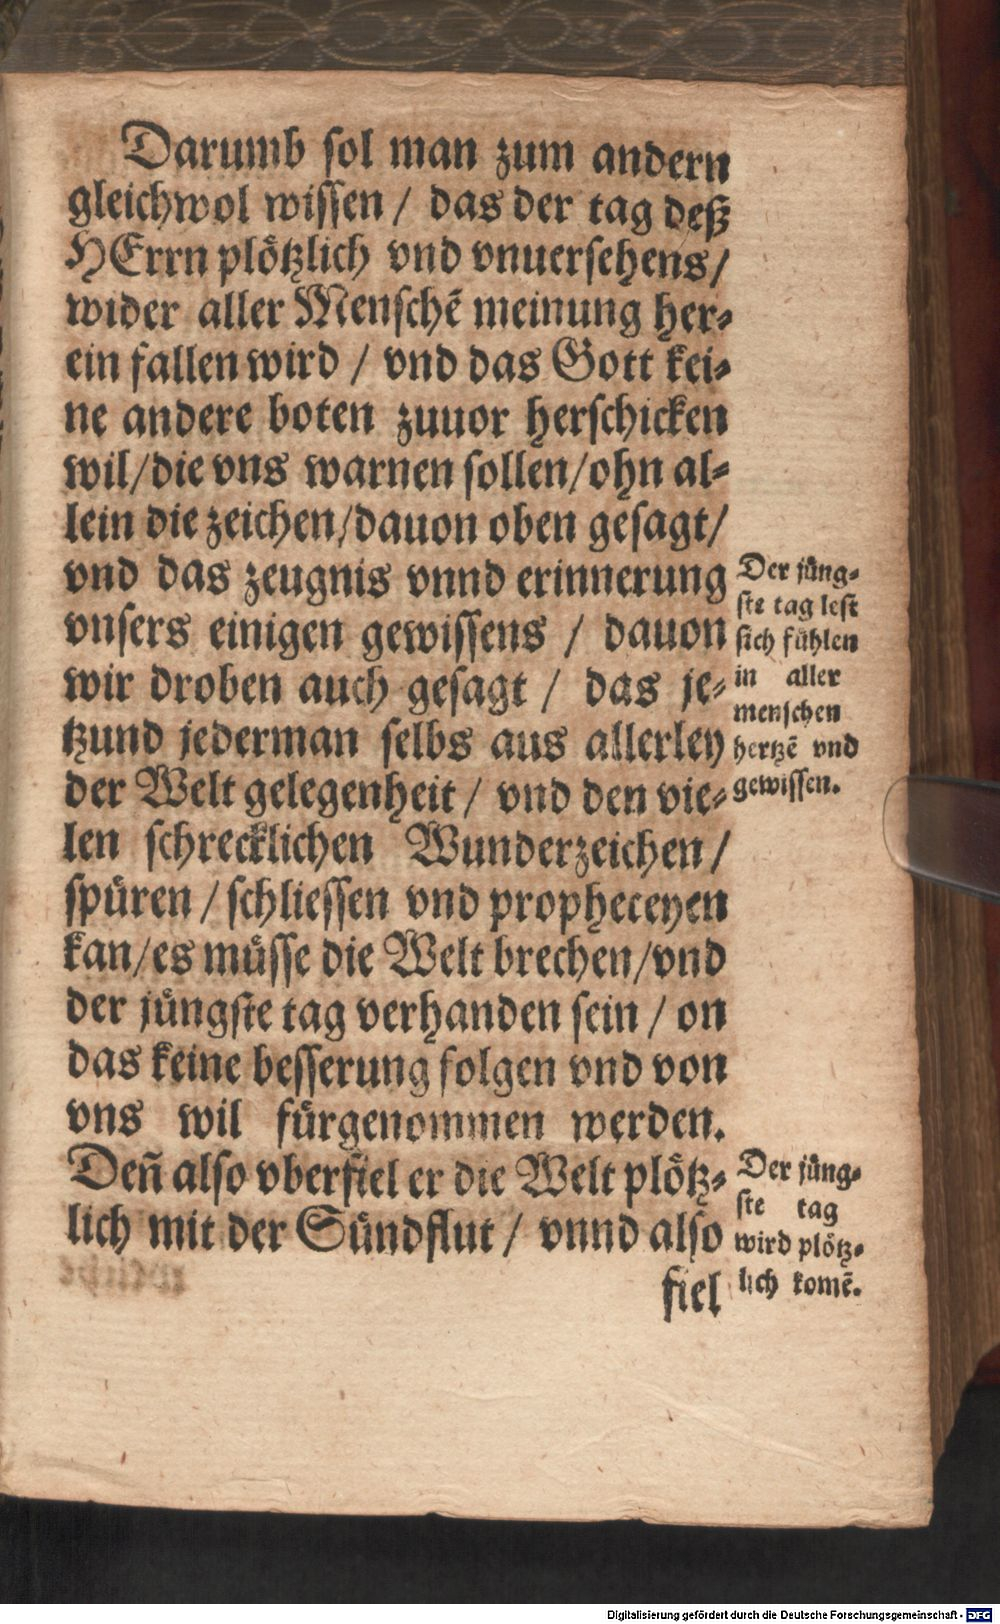 Darumb sol man zum andern
gleichwol wissen / das der tag deß
HErrn plötzlich vnd vnuersehens/
wider aller Menschē meinung her-
ein fallen wird / vnd das Gott kei-
ne andere boten zuuor herschicken
wil/die vns warnen sollen/ohn al-
lein die zeichen/dauon oben gesagt/
vnd das zeugnis vnnd erinnerung
vnsers einigen gewissens / dauon
wir droben auch gesagt / das je-
tzund jederman selbs aus allerley
der Welt gelegenheit / vnd den vie-
len schrecklichen Wunderzeichen/
spüren / schliessen vnd propheceyen
kan/es müsse die Welt brechen/vnd
der jüngste tag verhanden sein / on
das keine besserung folgen vnd von
vns wil fürgenommen werden.
Deñ also vberfiel er die Welt plötz-
lich mit der Sündflut / vnnd also
fiel
Der jüng-
ste tag lest
sich fühlen
in aller
menschen
hertzē vnd
gewissen.
Der jüng-
ste tag
wird plötz-
lich komē.
Digitalisierung gefördert durch die Deutsche Forschungsgemeinschaft - DFG